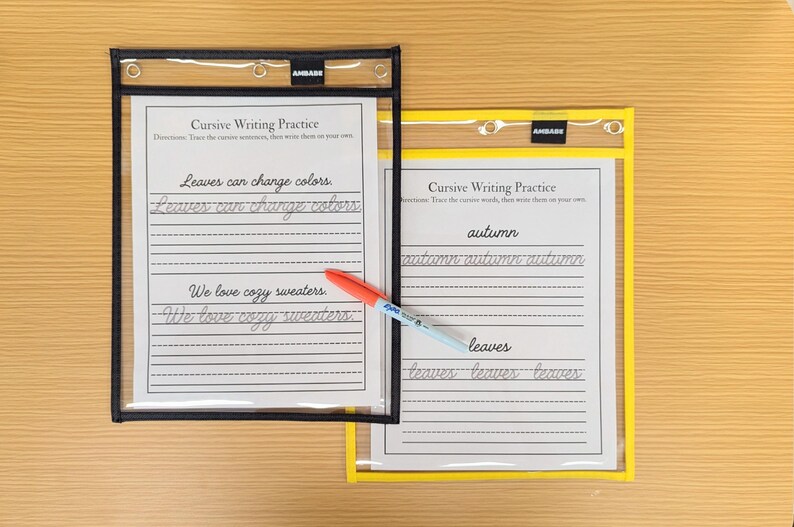 AMBABE
Cursive Writing Practice
Directions: Trace the cursive sentences, then write them on your own.
Leaves can change colors.
Leaves can change colors.
We love cozy sweaters.
We love cozy sweaters.
EXPO
AMBABE
Cursive Writing Practice
Directions: Trace the cursive words, then write them on your own.
autumn
autumn autumn autumn
leaves
leaves leaves leaves